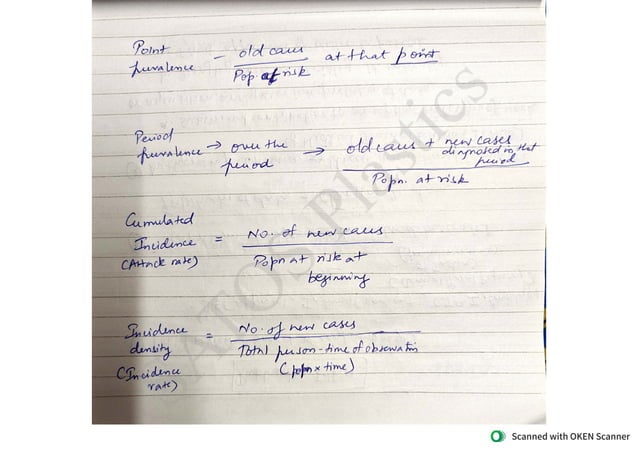 Point
prevalence – old cases at that point
Pop. at risk
Period
prevalence → over the period → old cases + new cases
diagnosed in that
period
Popn. at risk
Cumulated
Incidence = No. of new cases
(Attack rate) Popn at risk at
beginning
Incidence = No. of new cases
density Total person-time of observation
(Incidence (popn × time)
rate)
ATOS Plastics
Scanned with OKEN Scanner